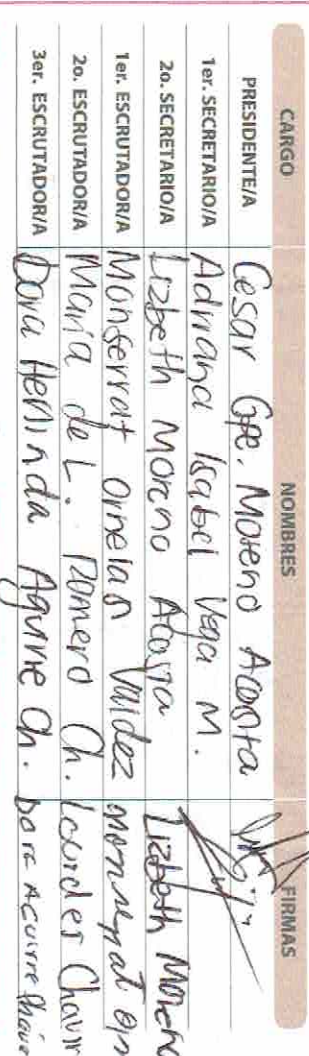 CARGO NOMBRES FIRMAS
PRESIDENTE/A Cesar Gpe. Moreno Acosta
1er. SECRETARIO/A Adriana Isabel Vega M.
2o. SECRETARIO/A Lizbeth Moreno Acosta Lizbeth Moreno
1er. ESCRUTADOR/A Monserrat Ornelas Valdez Monserrat Orn
2o. ESCRUTADOR/A Maria de L. Romero Ch. Lourdes Chavir
3er. ESCRUTADOR/A Dora Herlinda Aguirre Ch. Dora Aguirre Chave